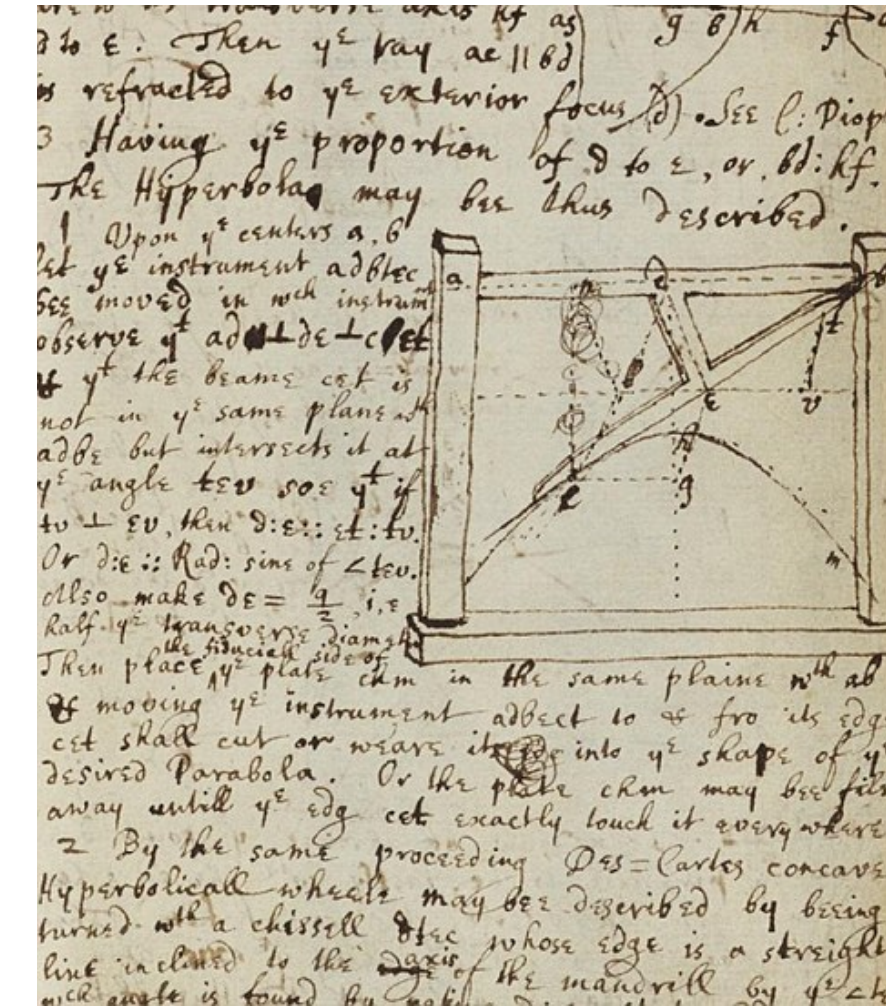 transverse axis hf as
d to e. Then yᵉ ray ac || bd
is refracted to yᵉ exterior focus (d). See C: Diop
3 Having yᵉ proportion of d to e, or bd:hf.
The Hyperbola may bee thus described.
1 Upon yᵉ centers a, b
let yᵉ instrument adbtec
bee moved in wᶜʰ instrumᵗ
observe yᵗ ad⊥de⊥cet
& yᵗ the beame cet is
not in yᵉ same plane wᵗʰ
adbe but intersects it at
yᵉ angle tev soe yᵗ if
tv ⊥ ev, then d:e::et:tv.
Or d:e::Rad: sine of ∠tev.
Also make de = q/2, i,e
half yᵉ transverse diamet
the fiduciall side of
Then place ^ yᵉ plate chm in the same plaine wᵗʰ ab
& moving yᵉ instrument adbect to & fro its edg
cet shall cut or weare it into yᵉ shape of yᵉ
desired Parabola. Or the plate chm may bee file
away untill yᵉ edg cet exactly touch it every where
2 By the same proceeding Des=Cartes concave
Hyperbolicall wheele may bee described by beeing
turned wᵗʰ a chissell dtec whose edge is a streight
line inclined to the axis of the mandrill by yᵉ
wᶜʰ angle is found by making
g b h f
a b
t
e v
h
c g
m